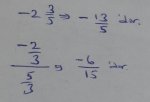 -2 3/5 ⇒ - 13/5 idir.
(-2/3)/(5/3) ⇒ -6/15 idir.